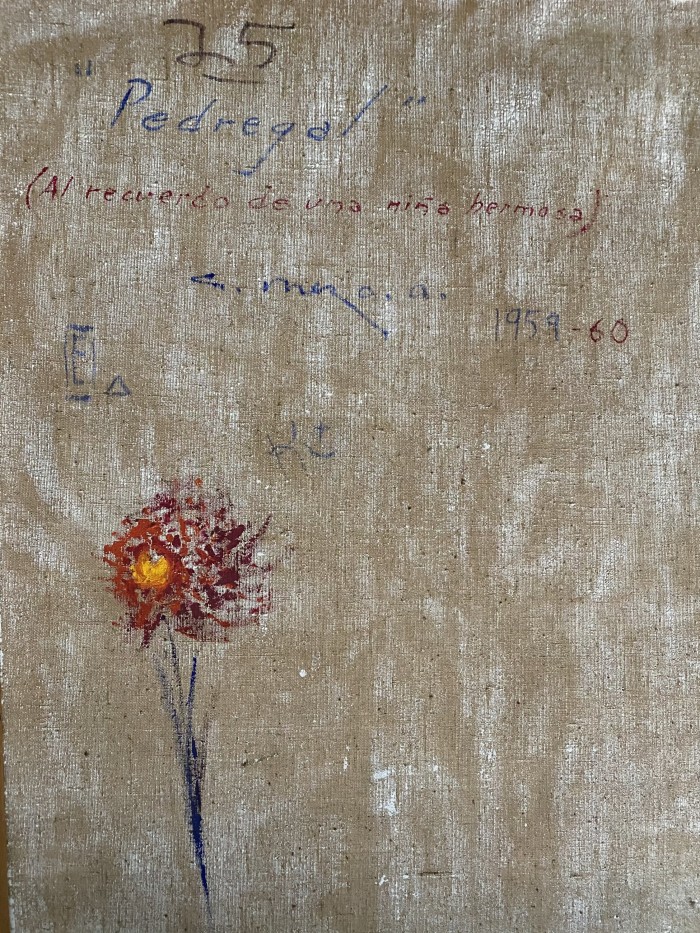 25
"Pedregal"
(Al recuerdo de una niña hermosa)
1959-60
E